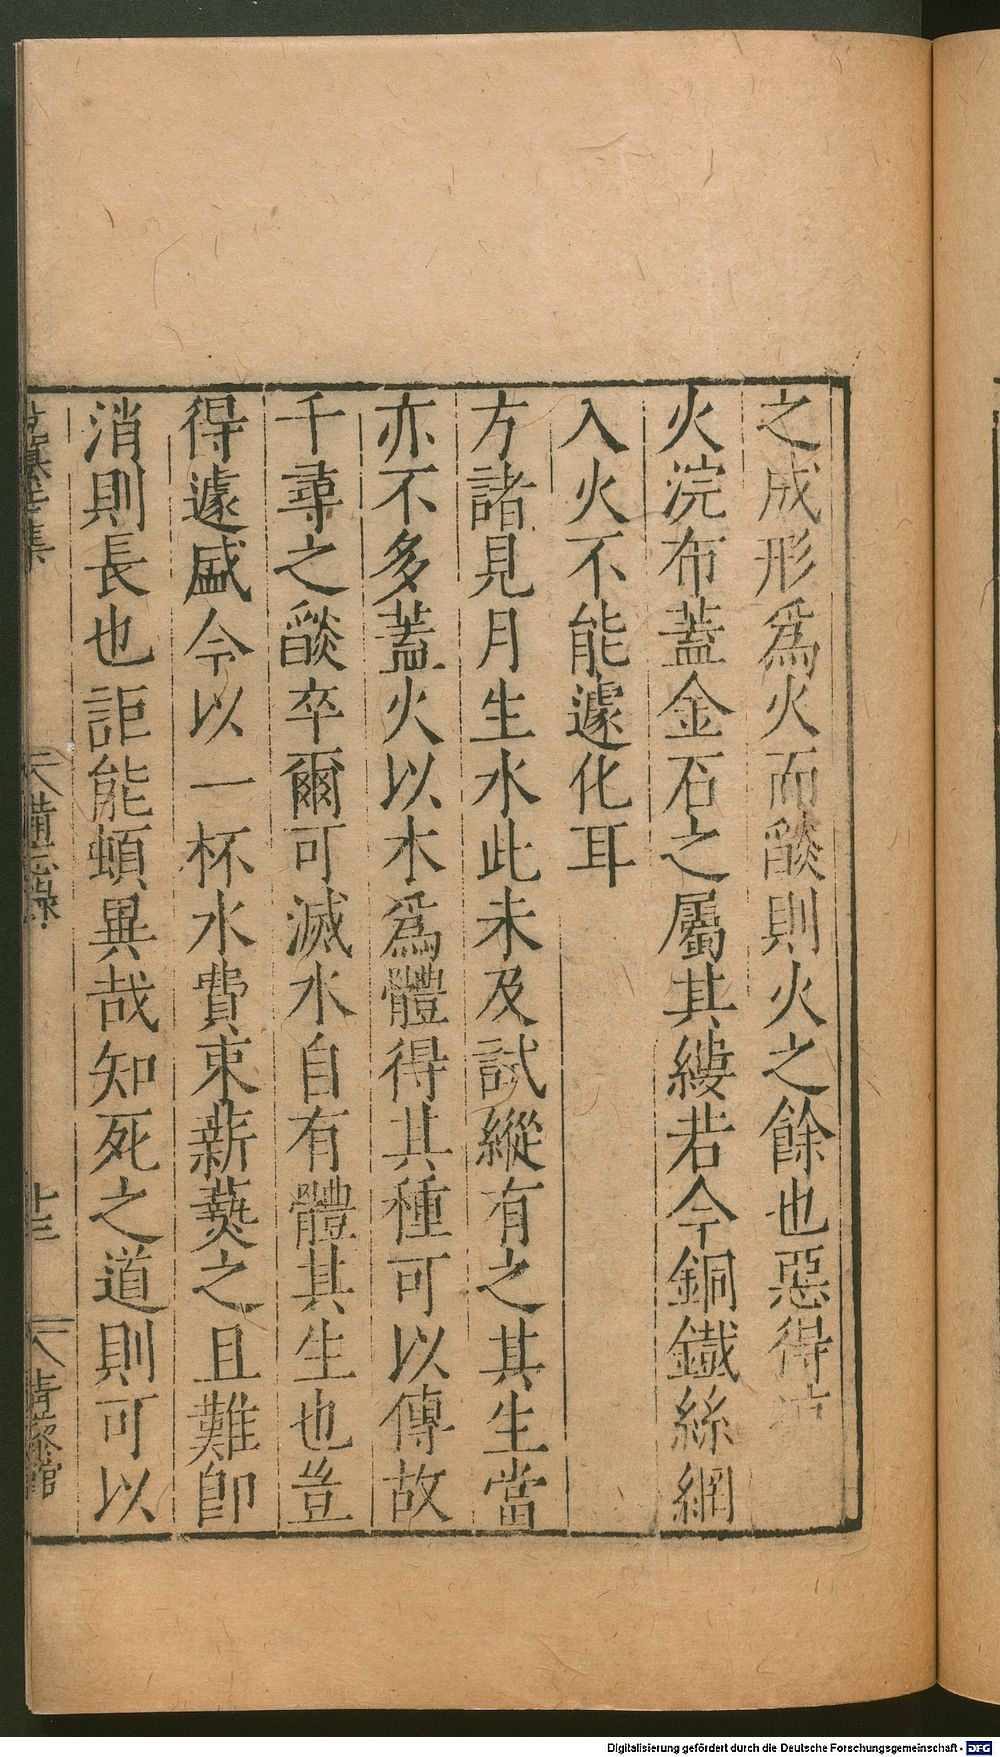 之成形爲火而燄則火之餘也惡得
火浣布蓋金石之屬其縷若今銅鐵絲網
入火不能遽化耳
方諸見月生水此未及試縱有之其生當
亦不多蓋火以木爲體得其種可以傳故
千尋之燄卒爾可滅水自有體其生也豈
得遽盛今以一杯水費束薪爇之且難卽
消則長也詎能頓異哉知死之道則可以
備忘錄
廿三
青藜館
Digitalisierung gefördert durch die Deutsche Forschungsgemeinschaft - DFG